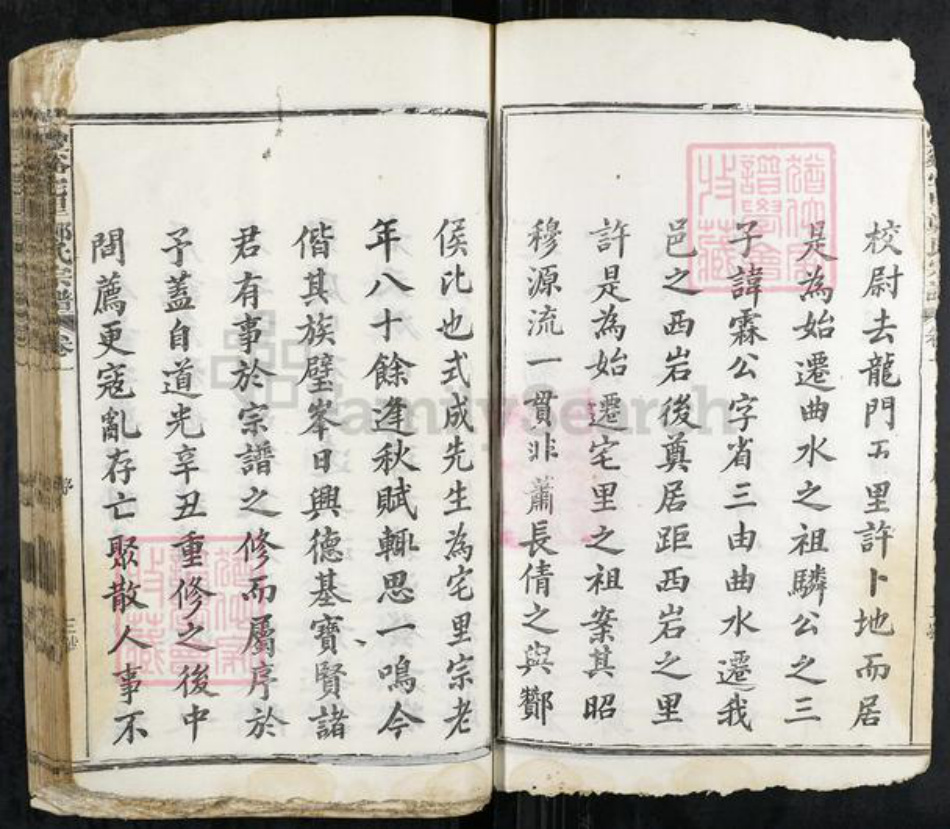 校尉去龍門五里許卜地而居
是為始遷曲水之祖驎公之三
子諱霖公字省三由曲水遷我
邑之西岩後奠居距西岩之里
許是為始遷宅里之祖案其昭
穆源流一貫非蕭長倩之與酇
侯比也式成先生為宅里宗老
年八十餘逢秋賦輒思一鳴今
偕其族璧峯日興德基寶賢諸
君有事於宗譜之修而屬序於
予蓋自道光辛丑重修之後中
間薦更寇亂存亡聚散人事不
宅里鄭氏宗譜 卷一 序
FamilySearch